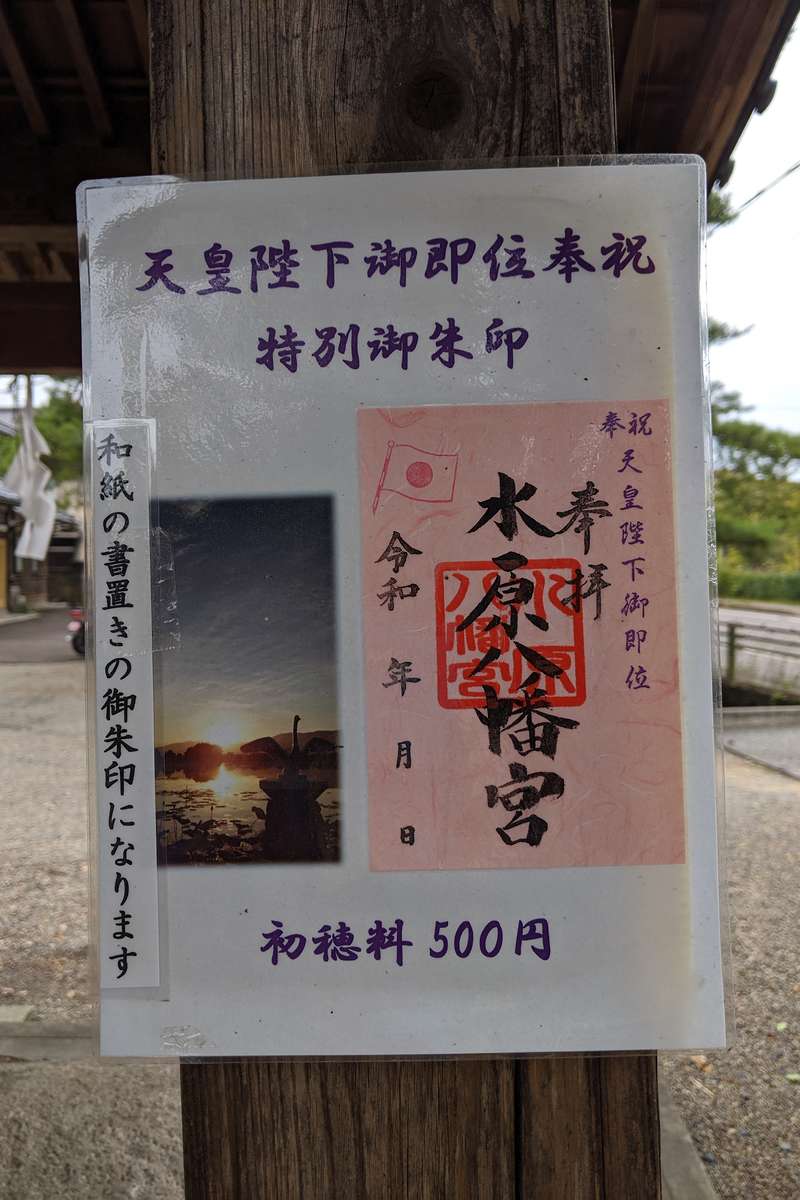 天皇陛下御即位奉祝
特別御朱印
奉祝
天皇陛下御即位
奉拝
水原八幡宮
水原
八幡宮
令和 年 月 日
和紙の書置きの御朱印になります
初穂料 500円